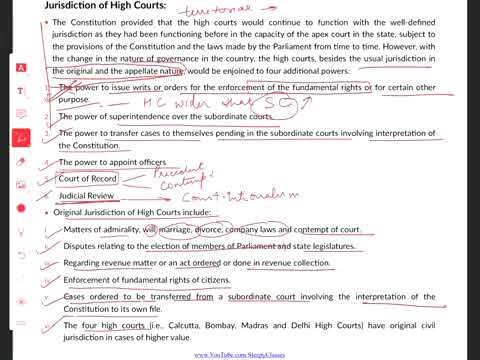 Jurisdiction of High Courts: territorial
• The Constitution provided that the high courts would continue to function with the well-defined
jurisdiction as they had been functioning before in the capacity of the apex court in the state, subject
to the provisions of the Constitution and the laws made by the Parliament from time to time. However, with
the change in the nature of governance in the country, the high courts, besides the usual jurisdiction in
the original and the appellate nature, would be enjoined to four additional powers:
1. The power to issue writs or orders for the enforcement of the fundamental rights or for certain other
purpose. HC wider that SC
2. The power of superintendence over the subordinate courts.
3. The power to transfer cases to themselves pending in the subordinate courts involving interpretation of
the Constitution.
4. The power to appoint officers.
5. Court of Record Precedent
Contempt
6. Judicial Review Constitutionalism
• Original Jurisdiction of High Courts include:
i. Matters of admirality, will, marriage, divorce, company laws and contempt of court.
ii. Disputes relating to the election of members of Parliament and state legislatures.
iii. Regarding revenue matter or an act ordered or done in revenue collection.
iv. Enforcement of fundamental rights of citizens.
v. Cases ordered to be transferred from a subordinate court involving the interpretation of the
Constitution to its own file.
vi. The four high courts (i.e., Calcutta, Bombay, Madras and Delhi High Courts) have original civil
jurisdiction in cases of higher value.
www.YouTube.com/SleepyClasses